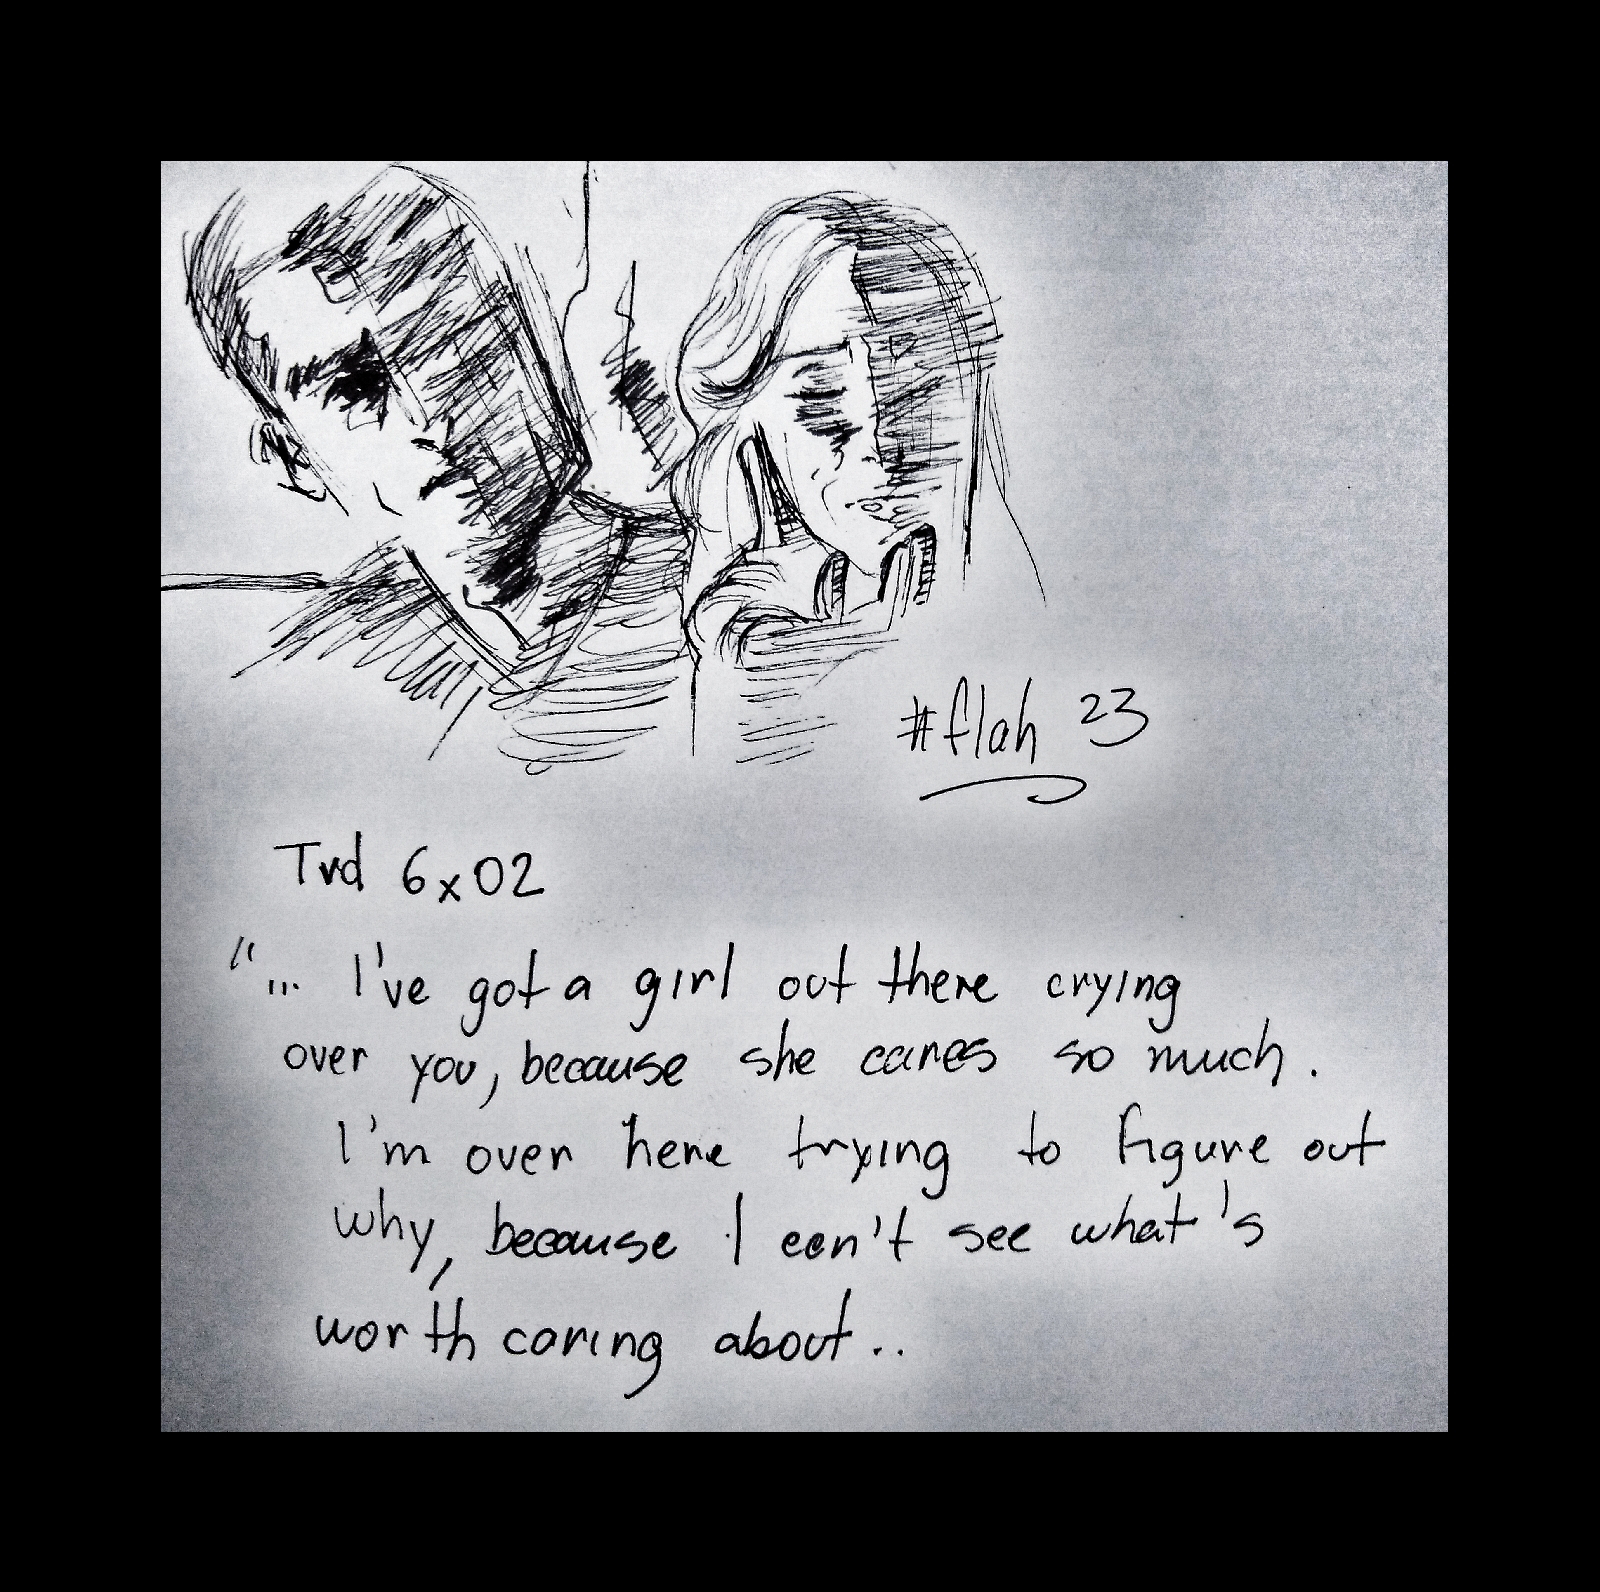 #flah 23
Tvd 6x02
"... I've got a girl out there crying
over you, because she cares so much.
I'm over here trying to figure out
why, because I can't see what's
worth caring about..